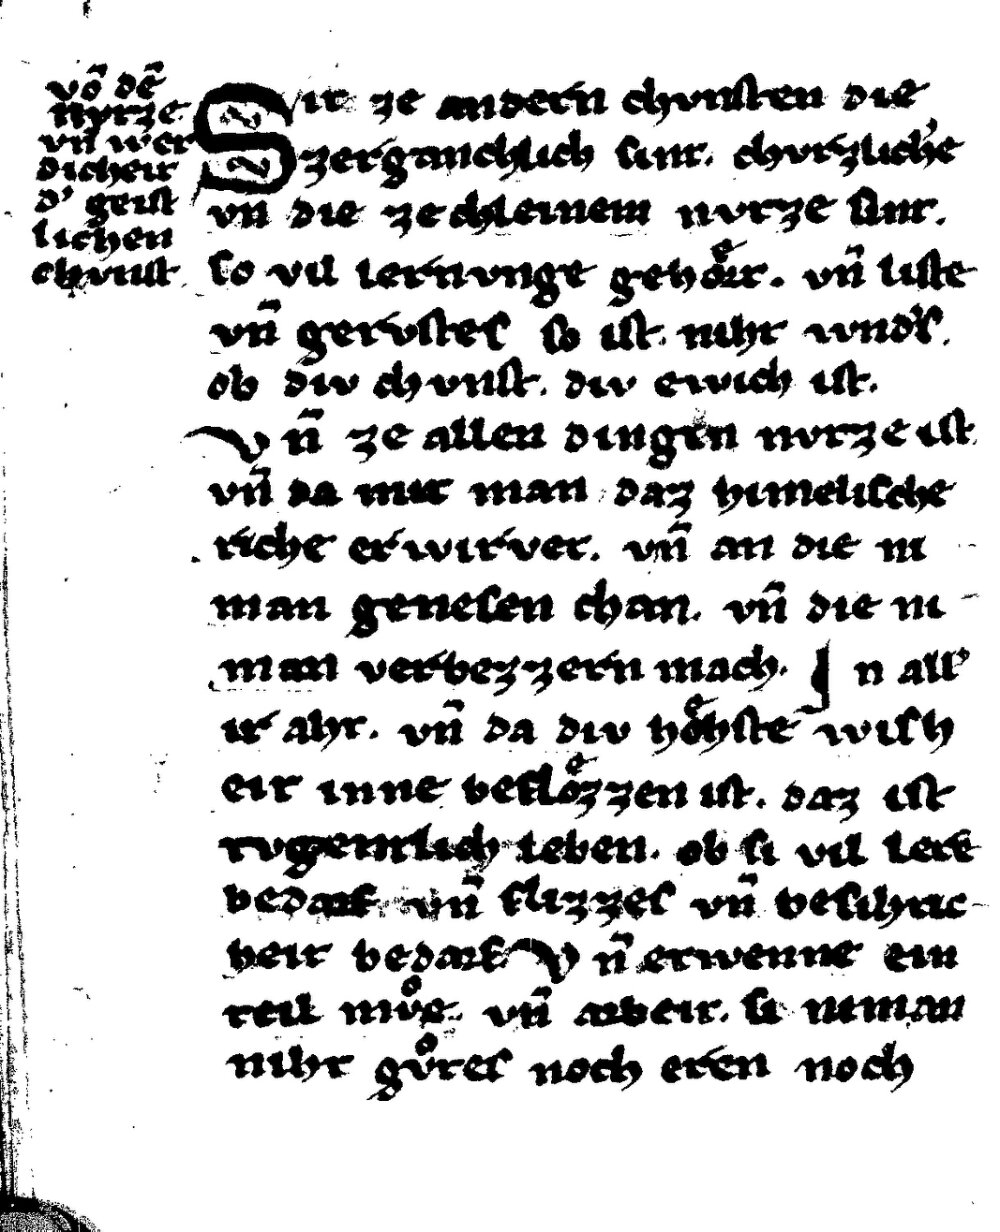 võ dē
nvtze
vñ wer
dicheit
d' geist
lichen
chvnst
Sit ze andern chvnsten die
zerganchlich sint. chvrzlich'e
vñ die ze chleinem nvtze sint.
so vil lernvnge gehoͤrt. vñ liste
vñ gervstes so ist niht wnd's.
ob div chvnst. div ewich ist.
Vñ ze allen dingen nvtze ist
vñ da mit man daz himelische
riche erwirvet. vñ an die ni
man genesen chan. vñ die ni
man verbezzern mach. In all'
ir aht. vñ da div hoͤhste wish
eit inne besloͤzzen ist. daz ist
tvgentlich leben. ob si vil lere
bedarf vñ flizzes vñ besihtic
heit bedarf Vñ etwenne ein
teil mvͦe. vñ arbeit. si niman
niht gvͦtes noch eren noch